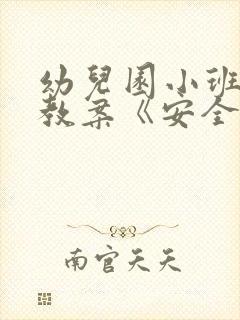 幼兒園小班
教案《安全
南宫天天